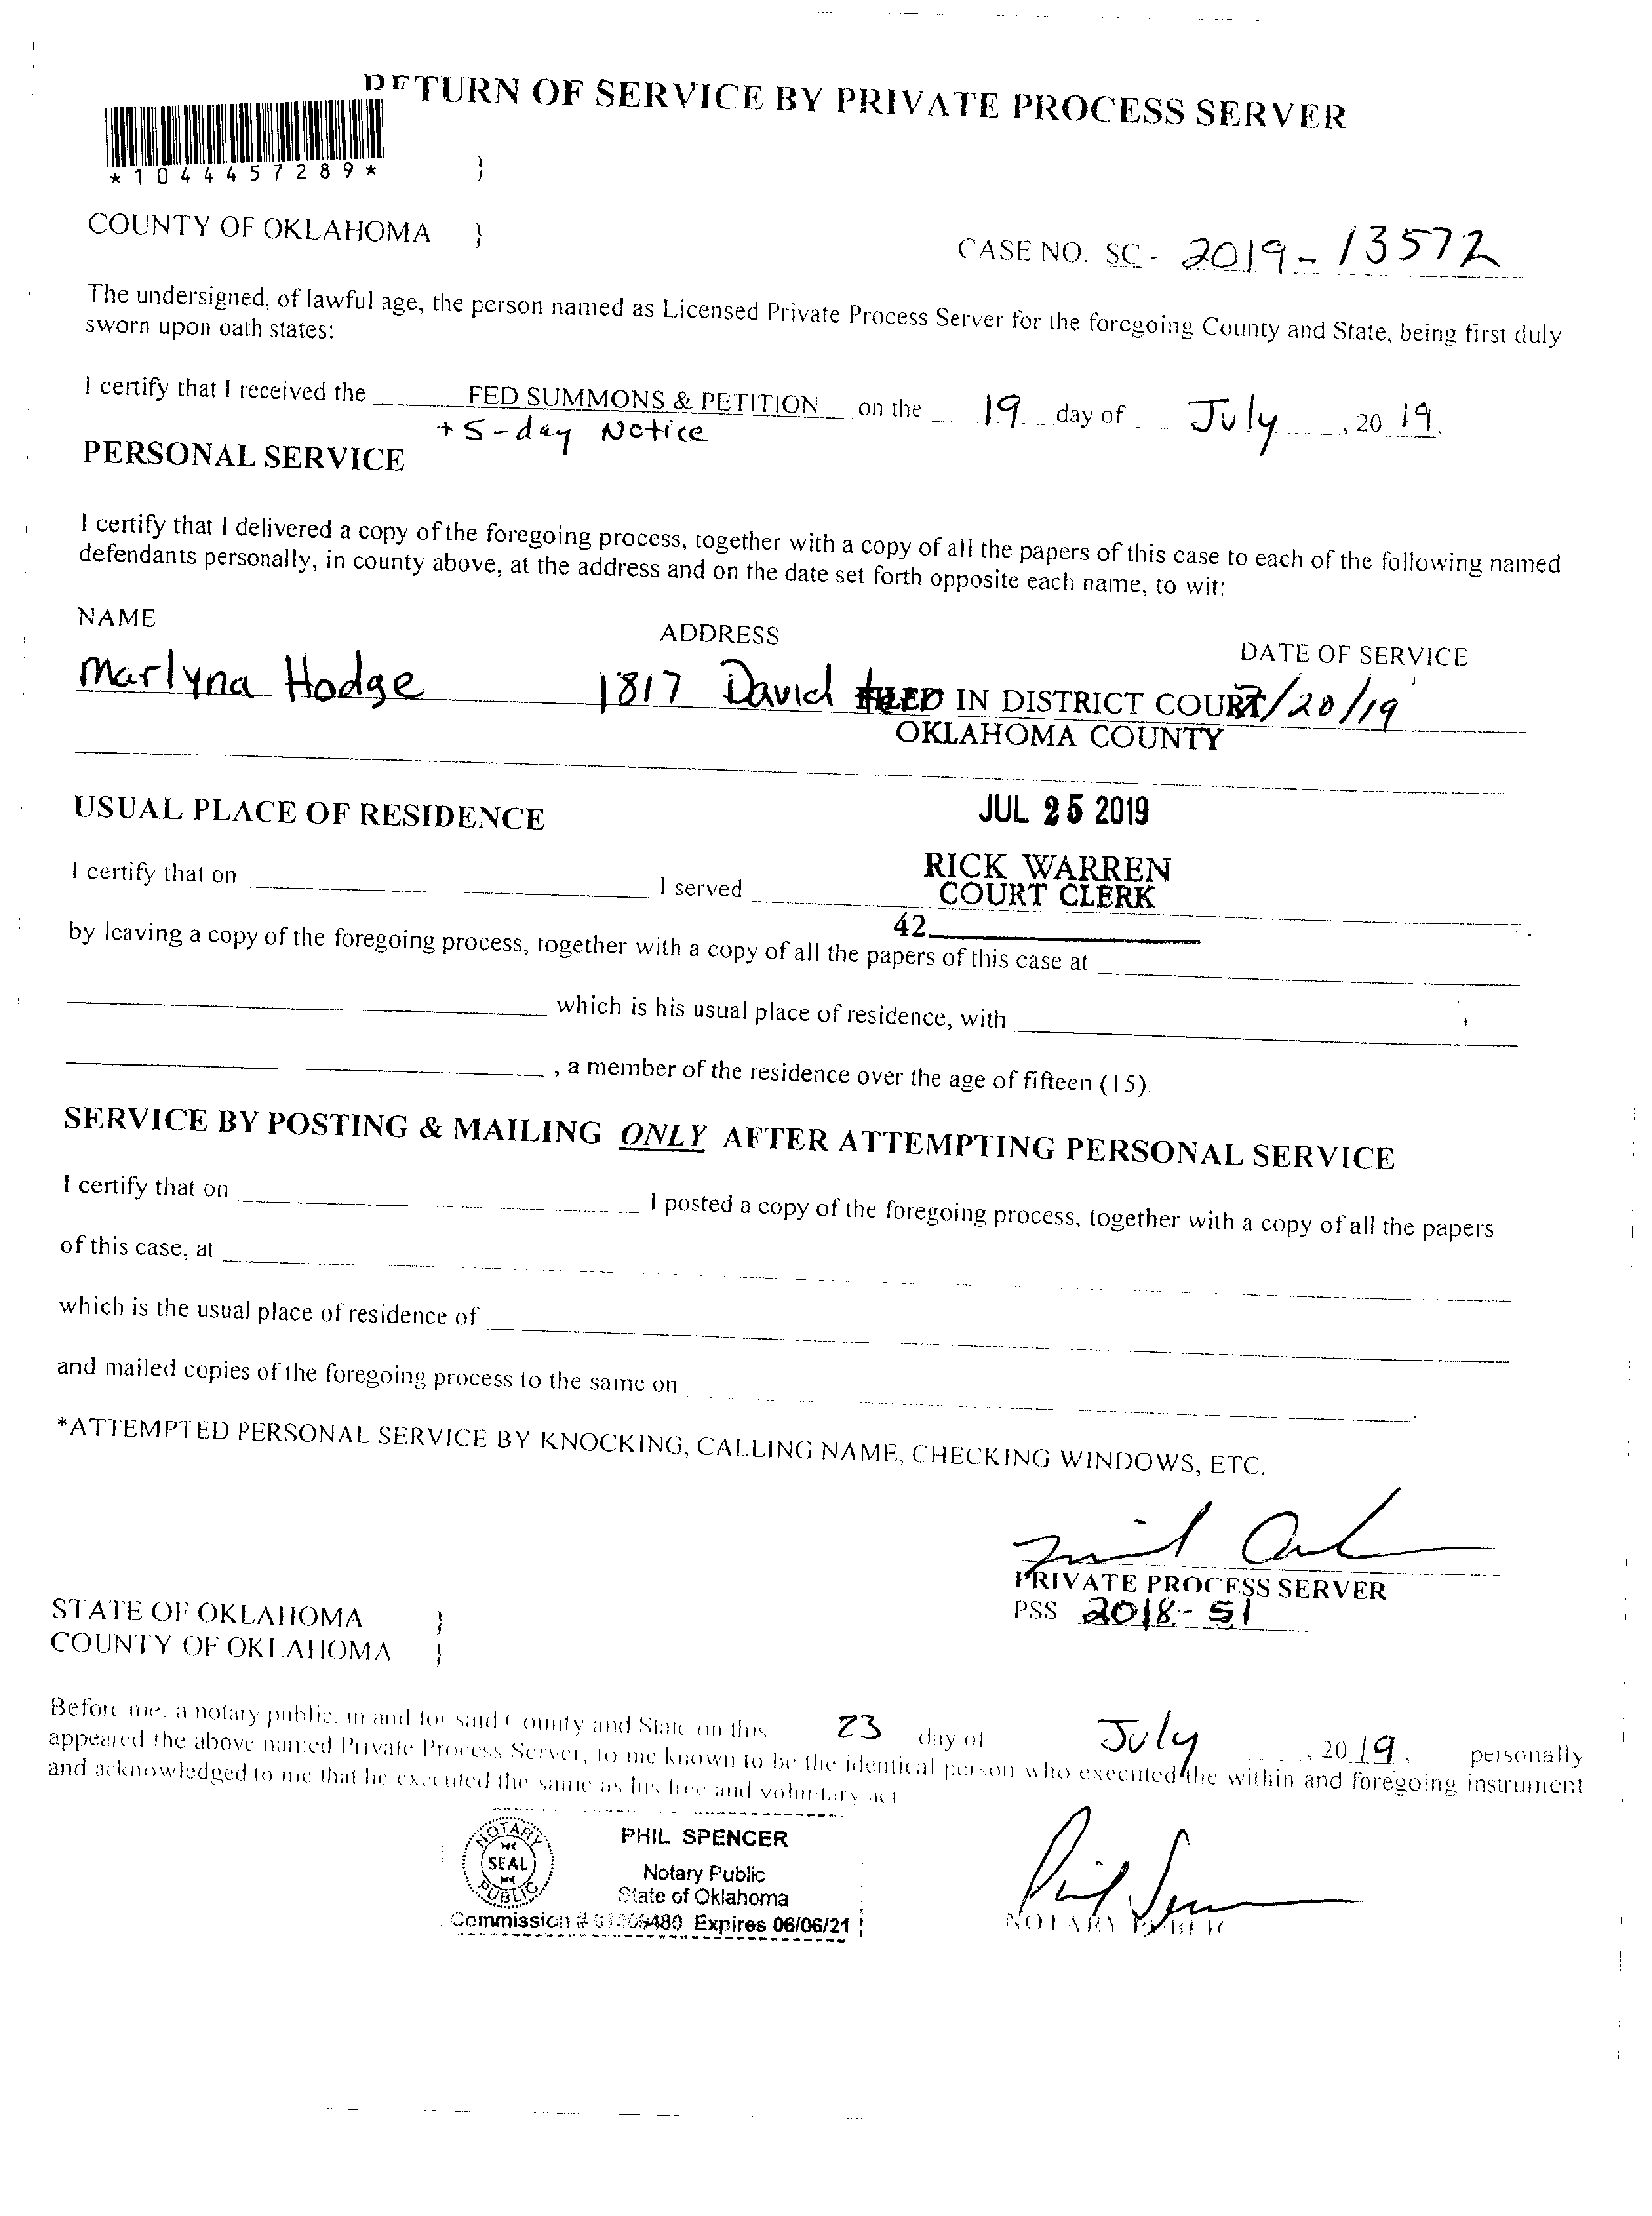 RETURN OF SERVICE BY PRIVATE PROCESS SERVER
*1044457289* }
COUNTY OF OKLAHOMA }
CASE NO. SC - 2019-13572
The undersigned, of lawful age, the person named as Licensed Private Process Server for the foregoing County and State, being first duly
sworn upon oath states:
I certify that I received the FED SUMMONS & PETITION on the 19 day of July, 20 19.
+ 5-day Notice
PERSONAL SERVICE
I certify that I delivered a copy of the foregoing process, together with a copy of all the papers of this case to each of the following named
defendants personally, in county above, at the address and on the date set forth opposite each name, to wit:
NAME ADDRESS DATE OF SERVICE
Marlyna Hodge 1817 David 7/20/19
FILED IN DISTRICT COURT
OKLAHOMA COUNTY
USUAL PLACE OF RESIDENCE
JUL 25 2019
RICK WARREN
COURT CLERK
I certify that on I served
42
by leaving a copy of the foregoing process, together with a copy of all the papers of this case at
which is his usual place of residence, with
, a member of the residence over the age of fifteen (15).
SERVICE BY POSTING & MAILING ONLY AFTER ATTEMPTING PERSONAL SERVICE
I certify that on I posted a copy of the foregoing process, together with a copy of all the papers
of this case, at
which is the usual place of residence of
and mailed copies of the foregoing process to the same on
*ATTEMPTED PERSONAL SERVICE BY KNOCKING, CALLING NAME, CHECKING WINDOWS, ETC.
PRIVATE PROCESS SERVER
PSS 2018-51
STATE OF OKLAHOMA }
COUNTY OF OKLAHOMA }
Before me, a notary public, in and for said County and State on this 23 day of July, 2019, personally
appeared the above named Private Process Server, to me known to be the identical person who executed the within and foregoing instrument
and acknowledged to me that he executed the same as his free and voluntary act
NOTARY
SEAL
PUBLIC
PHIL SPENCER
Notary Public
State of Oklahoma
Commission # Expires 06/06/21
Phil Spencer
NOTARY PUBLIC